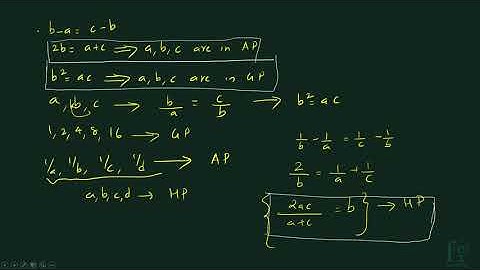 . b-a = c-b
2b = a+c ⟹ a,b,c are in AP
b² = ac ⟹ a,b,c are in GP
a, b, c → b/a = c/b → b² = ac
1, 2, 4, 8, 16 → GP
1/a, 1/b, 1/c, 1/d → AP
a,b,c,d → HP
1/b - 1/a = 1/c - 1/b
2/b = 1/a + 1/c
{ 2ac/(a+c) = b } → HP